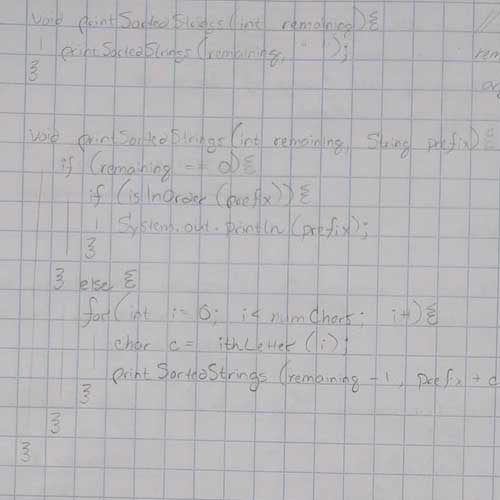 void printSortedStrings(int remaining){ //
printSortedStrings(remaining, ""); rem
}
void printSortedStrings(int remaining, String prefix){
if (remaining == 0){
if (isInOrder(prefix)){
System.out.println(prefix);
}
} else {
for(int i=0; i< numChars; i++){
char c = ithLetter(i);
printSortedStrings(remaining -1, prefix + c
}
}
}